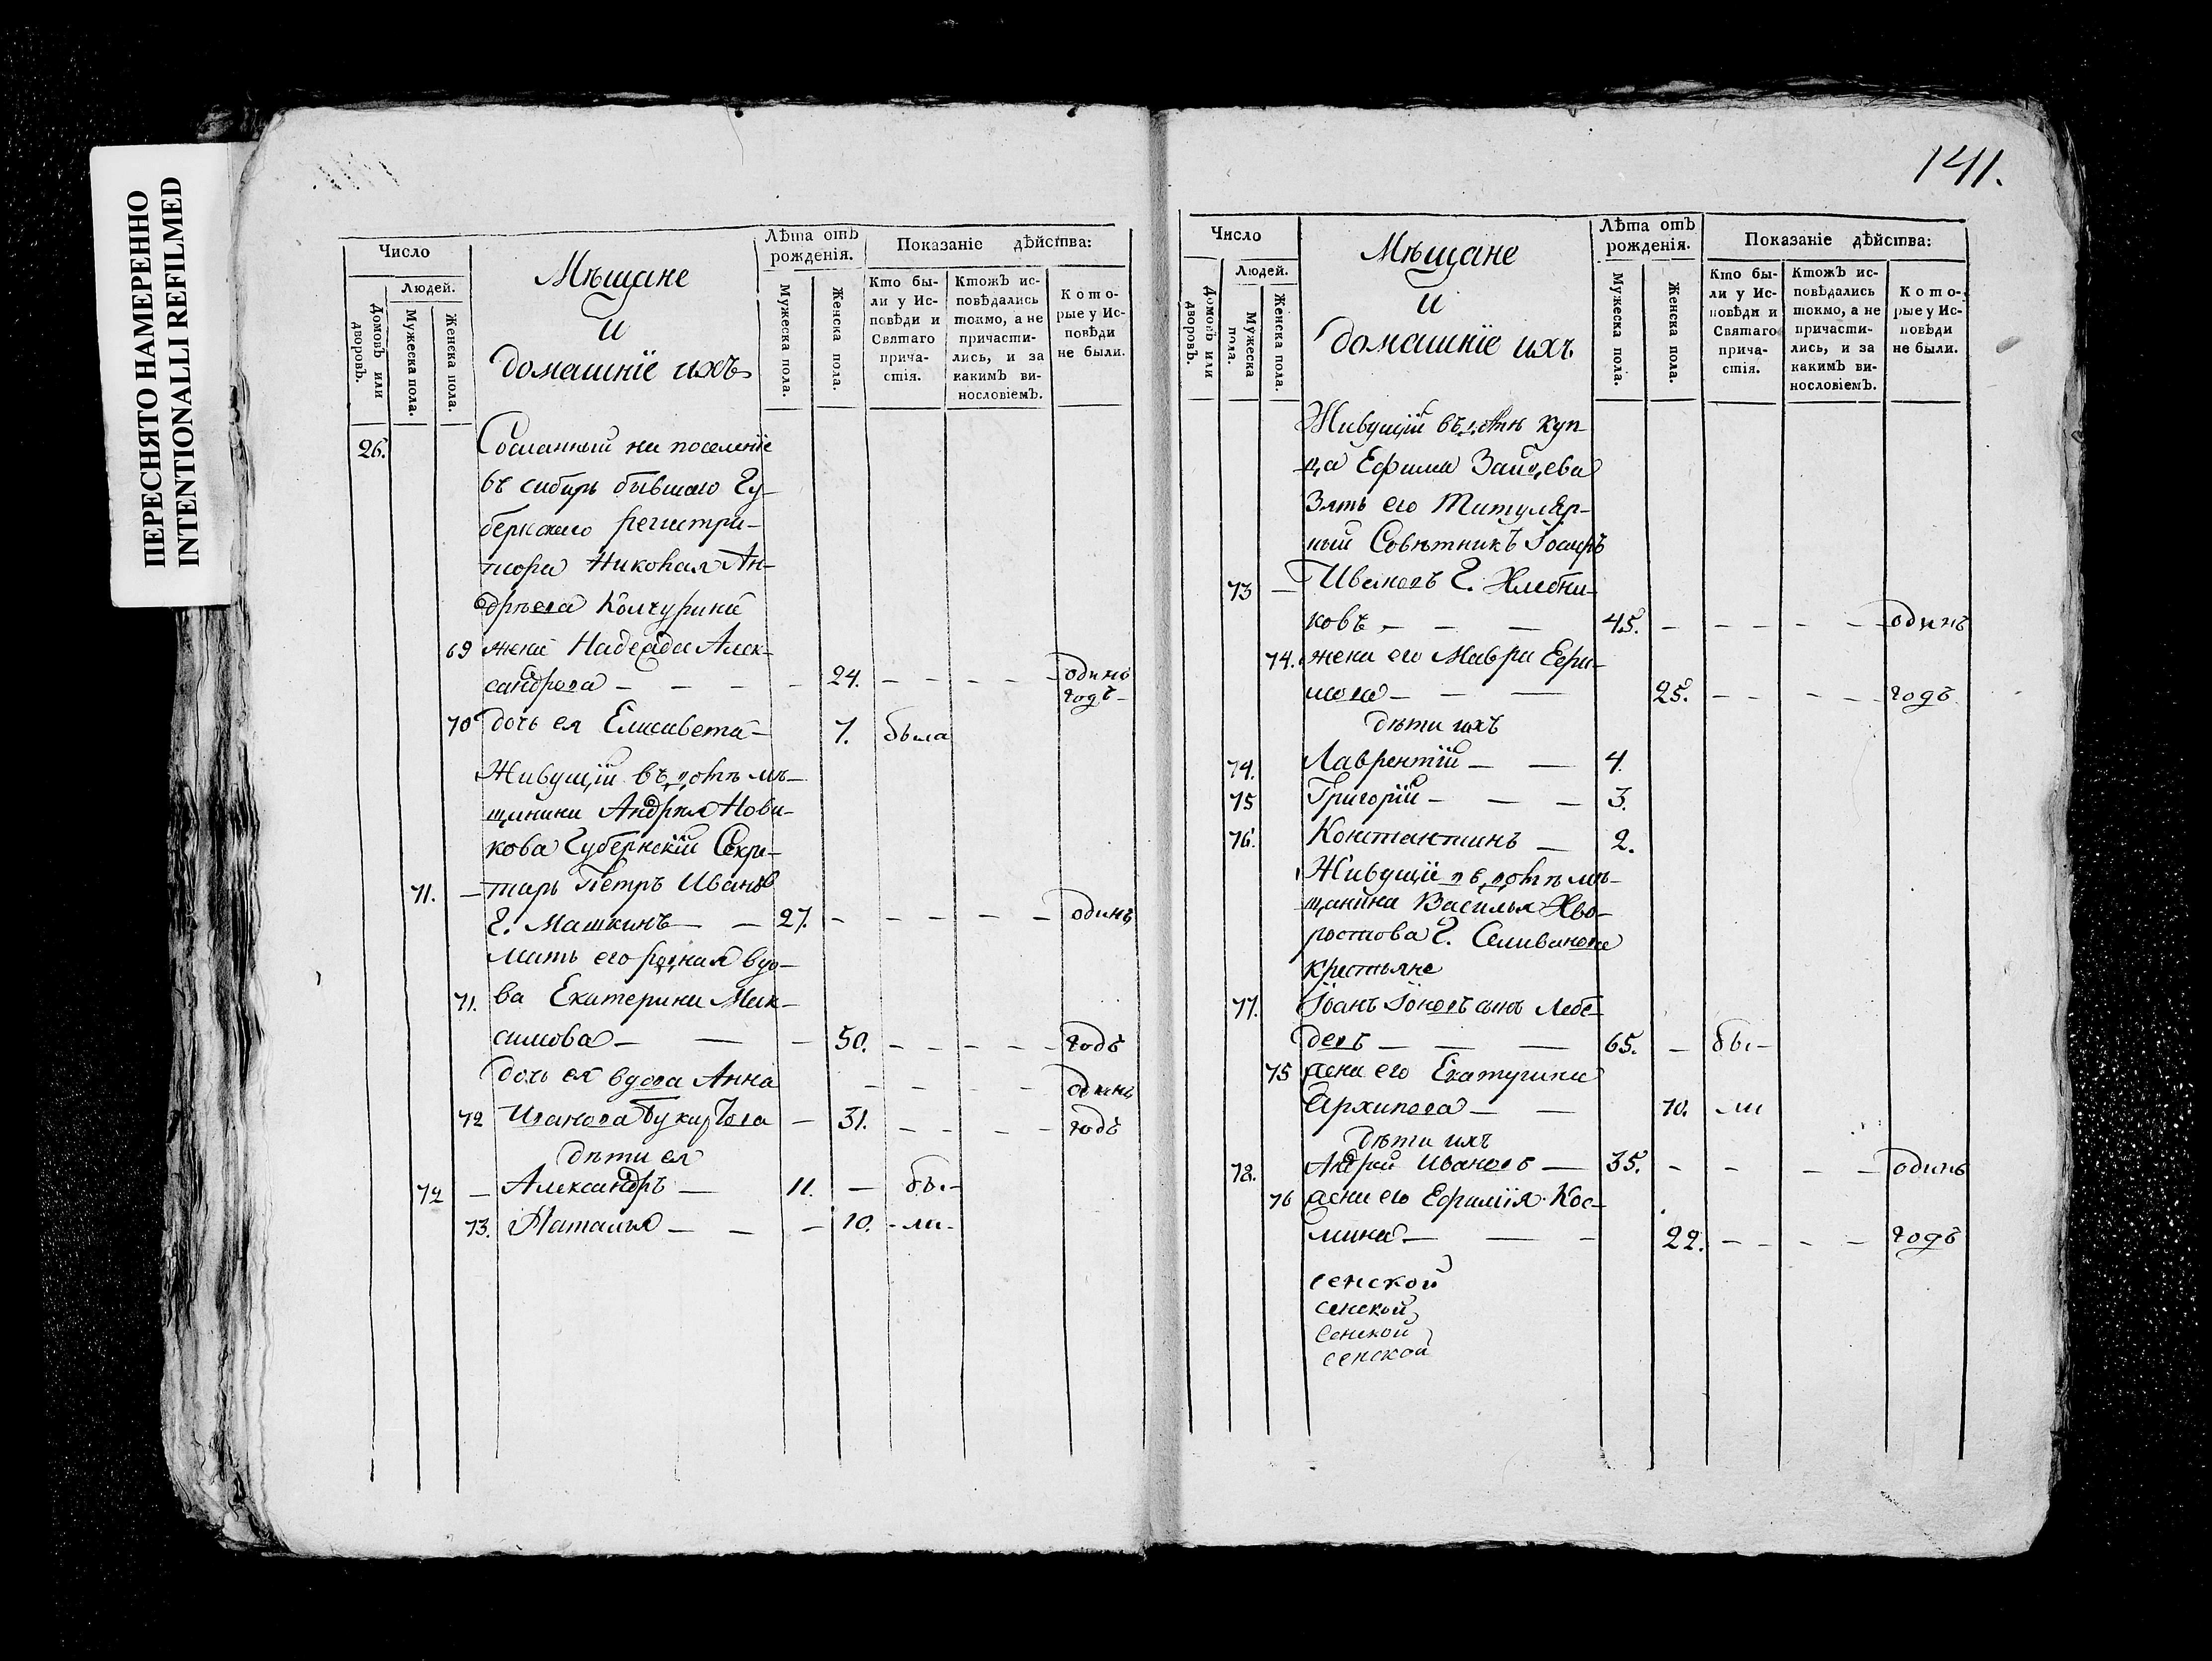 ПЕРЕСНЯТО НАМЕРЕННО
INTENTIONALLI REFILMED
Число
Людей.
Домовъ или дворовъ.
Мужеска пола.
Женска пола.
Мѣщане
и
домашнїе ихъ
Лѣта отъ рожденія.
Мужеска пола.
Женска пола.
Показаніе дѣйства:
Кто бы-
ли у Ис-
повѣди и
Святаго
прича-
стія.
Ктожъ ис-
повѣдались
токмо, а не
причасти-
лись, и за
какимъ ви-
нословіемъ.
Кото-
рые у Ис-
повѣди
не были.
26. Сосланный на поселенїе
въ сибирь бывшаго Гу-
бернскаго регистра-
тора Николая Ан-
дрѣева Колчурина
69 жена Надежда Алек-
сандрова — — — — 24. — — — — — одинъ
годъ —
70 дочь ея Елисавета — 7. была
Живущїй въ домѣ мѣ-
щанина Андрея Нови-
кова Губернскїй Секре-
71. — тарь Петръ Ивановъ
С. Машкинъ — — 27. — — — — — одинъ
мать его родная вдо-
71. ва Екатерина Мак-
симова — — — 50. — — — — — годъ
дочь ея вдова Анна — — — — одинъ
72 Иванова — 31. — — — — годъ
дѣти ея
72 — Александръ — 11. — бы-
73. Наталья — — — 10. - ли -
141.
Число
Людей.
Домовъ или дворовъ.
Мужеска пола.
Женска пола.
Мѣщане
и
домашнїе ихъ
Лѣта отъ рожденія.
Мужеска пола.
Женска пола.
Показаніе дѣйства:
Кто бы-
ли у Ис-
повѣди и
Святаго
прича-
стія.
Ктожъ ис-
повѣдались
токмо, а не
причасти-
лись, и за
какимъ ви-
нословіемъ.
Кото-
рые у Ис-
повѣди
не были.
Живущїй въ домѣ куп-
ца Ефима Зайцева
Зять его Титуляр-
ный Совѣтникъ Їосифъ
73 — Ивановъ С. Хлебни-
ковъ — — — 45. — — — — — одинъ
74. жена его Мавра Ефи-
мова — — — 25. — — — — годъ
дѣти ихъ
74. Лаврентїй — — 4.
75 Григорїй — — — 3.
76. Константинъ — 2.
Живущїе въ домѣ мѣ-
щанина Василья Хво-
ростова С. Селиванова
крестьяне
77. Їоанъ сынъ Лебе-
девъ — — — 65. — бы-
75 жена его Екатерина
Архипова — — 70. ли
дѣти ихъ
78. Андрей Ивановъ — 35. — — — — одинъ
76 жена его Ефимїя Кос-
мина — — — 22. — — — — годъ
сенской
сенской
сенской
сенской